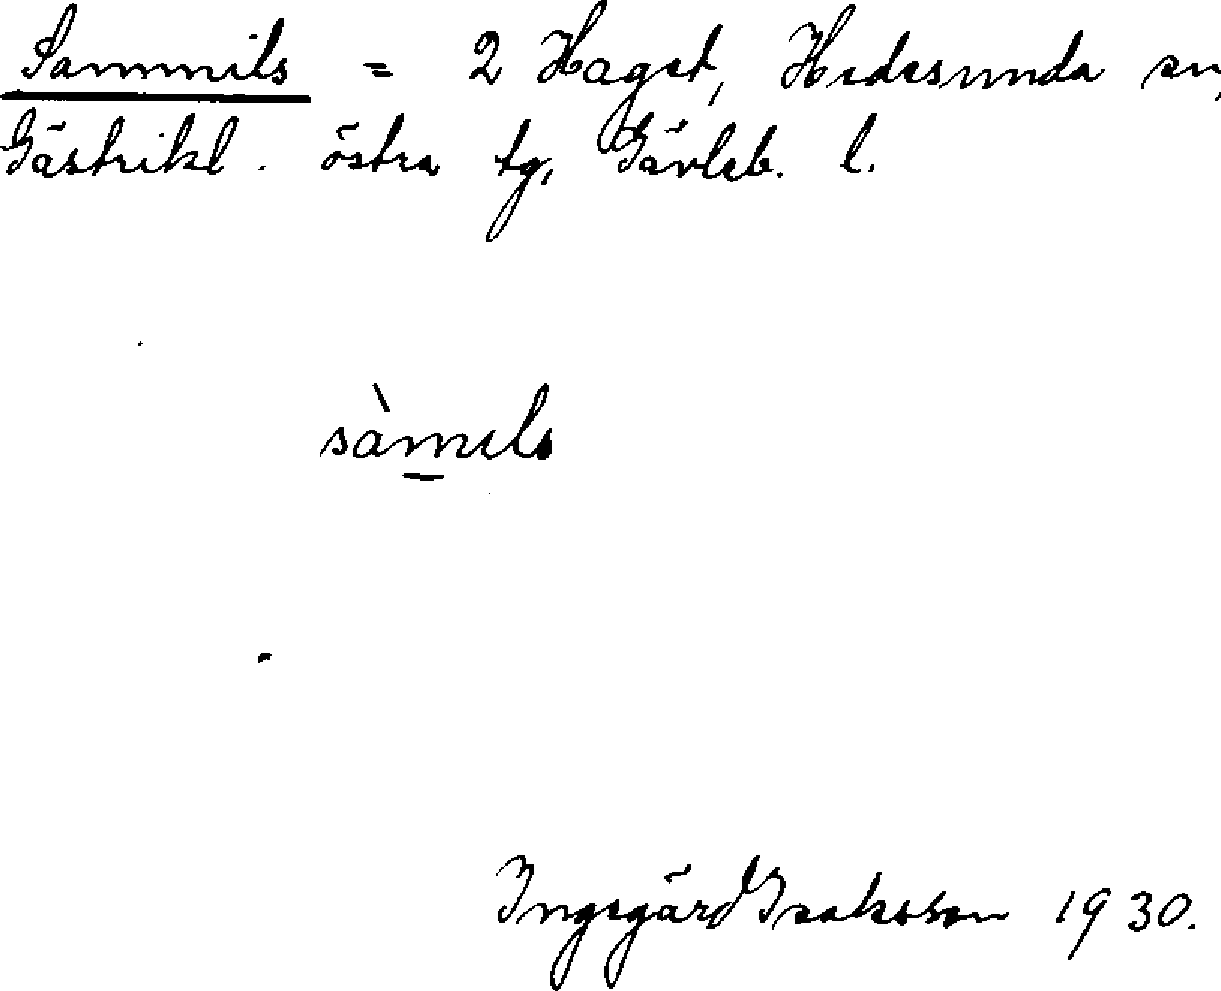 Sammils = 2 Haget, Hedesunda sn,
Gästrikl. östra tg, Gävleb. l.
sàmils
Ingegärd Isaksson 1930.